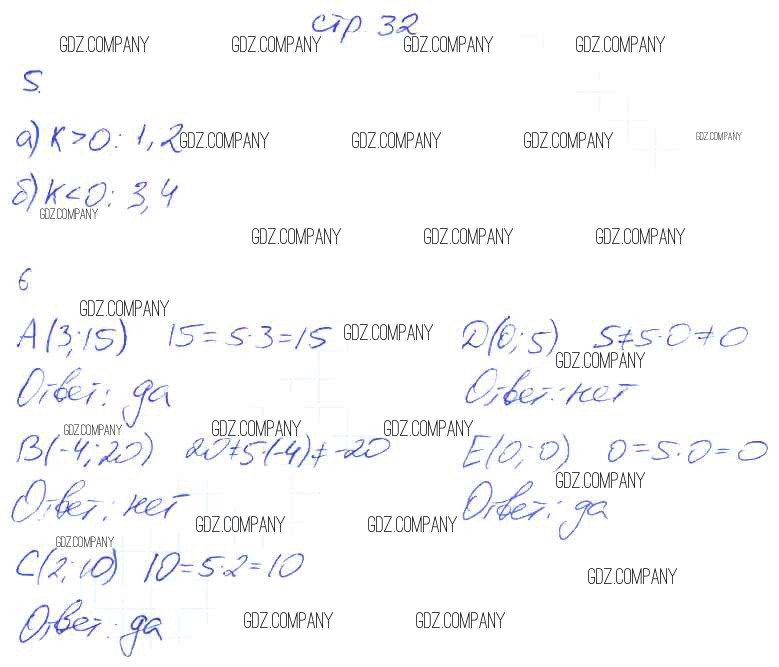 стр. 32
GDZ.COMPANY GDZ.COMPANY GDZ.COMPANY GDZ.COMPANY
5.
а) K>0: 1,2
GDZ.COMPANY GDZ.COMPANY GDZ.COMPANY GDZ.COMPANY
б) K<0: 3,4
GDZ.COMPANY
GDZ.COMPANY GDZ.COMPANY GDZ.COMPANY
6
GDZ.COMPANY
A(3;15) 15=5·3=15
GDZ.COMPANY
Ответ: да
B(-4;20) 20≠5·(-4)≠-20
GDZ.COMPANY GDZ.COMPANY GDZ.COMPANY
Ответ: нет
GDZ.COMPANY GDZ.COMPANY
GDZ.COMPANY
C(2;10) 10=5·2=10
Ответ: да
GDZ.COMPANY GDZ.COMPANY
D(0;5) 5≠5·0≠0
GDZ.COMPANY
Ответ: нет
E(0;0) 0=5·0=0
GDZ.COMPANY
Ответ: да
GDZ.COMPANY